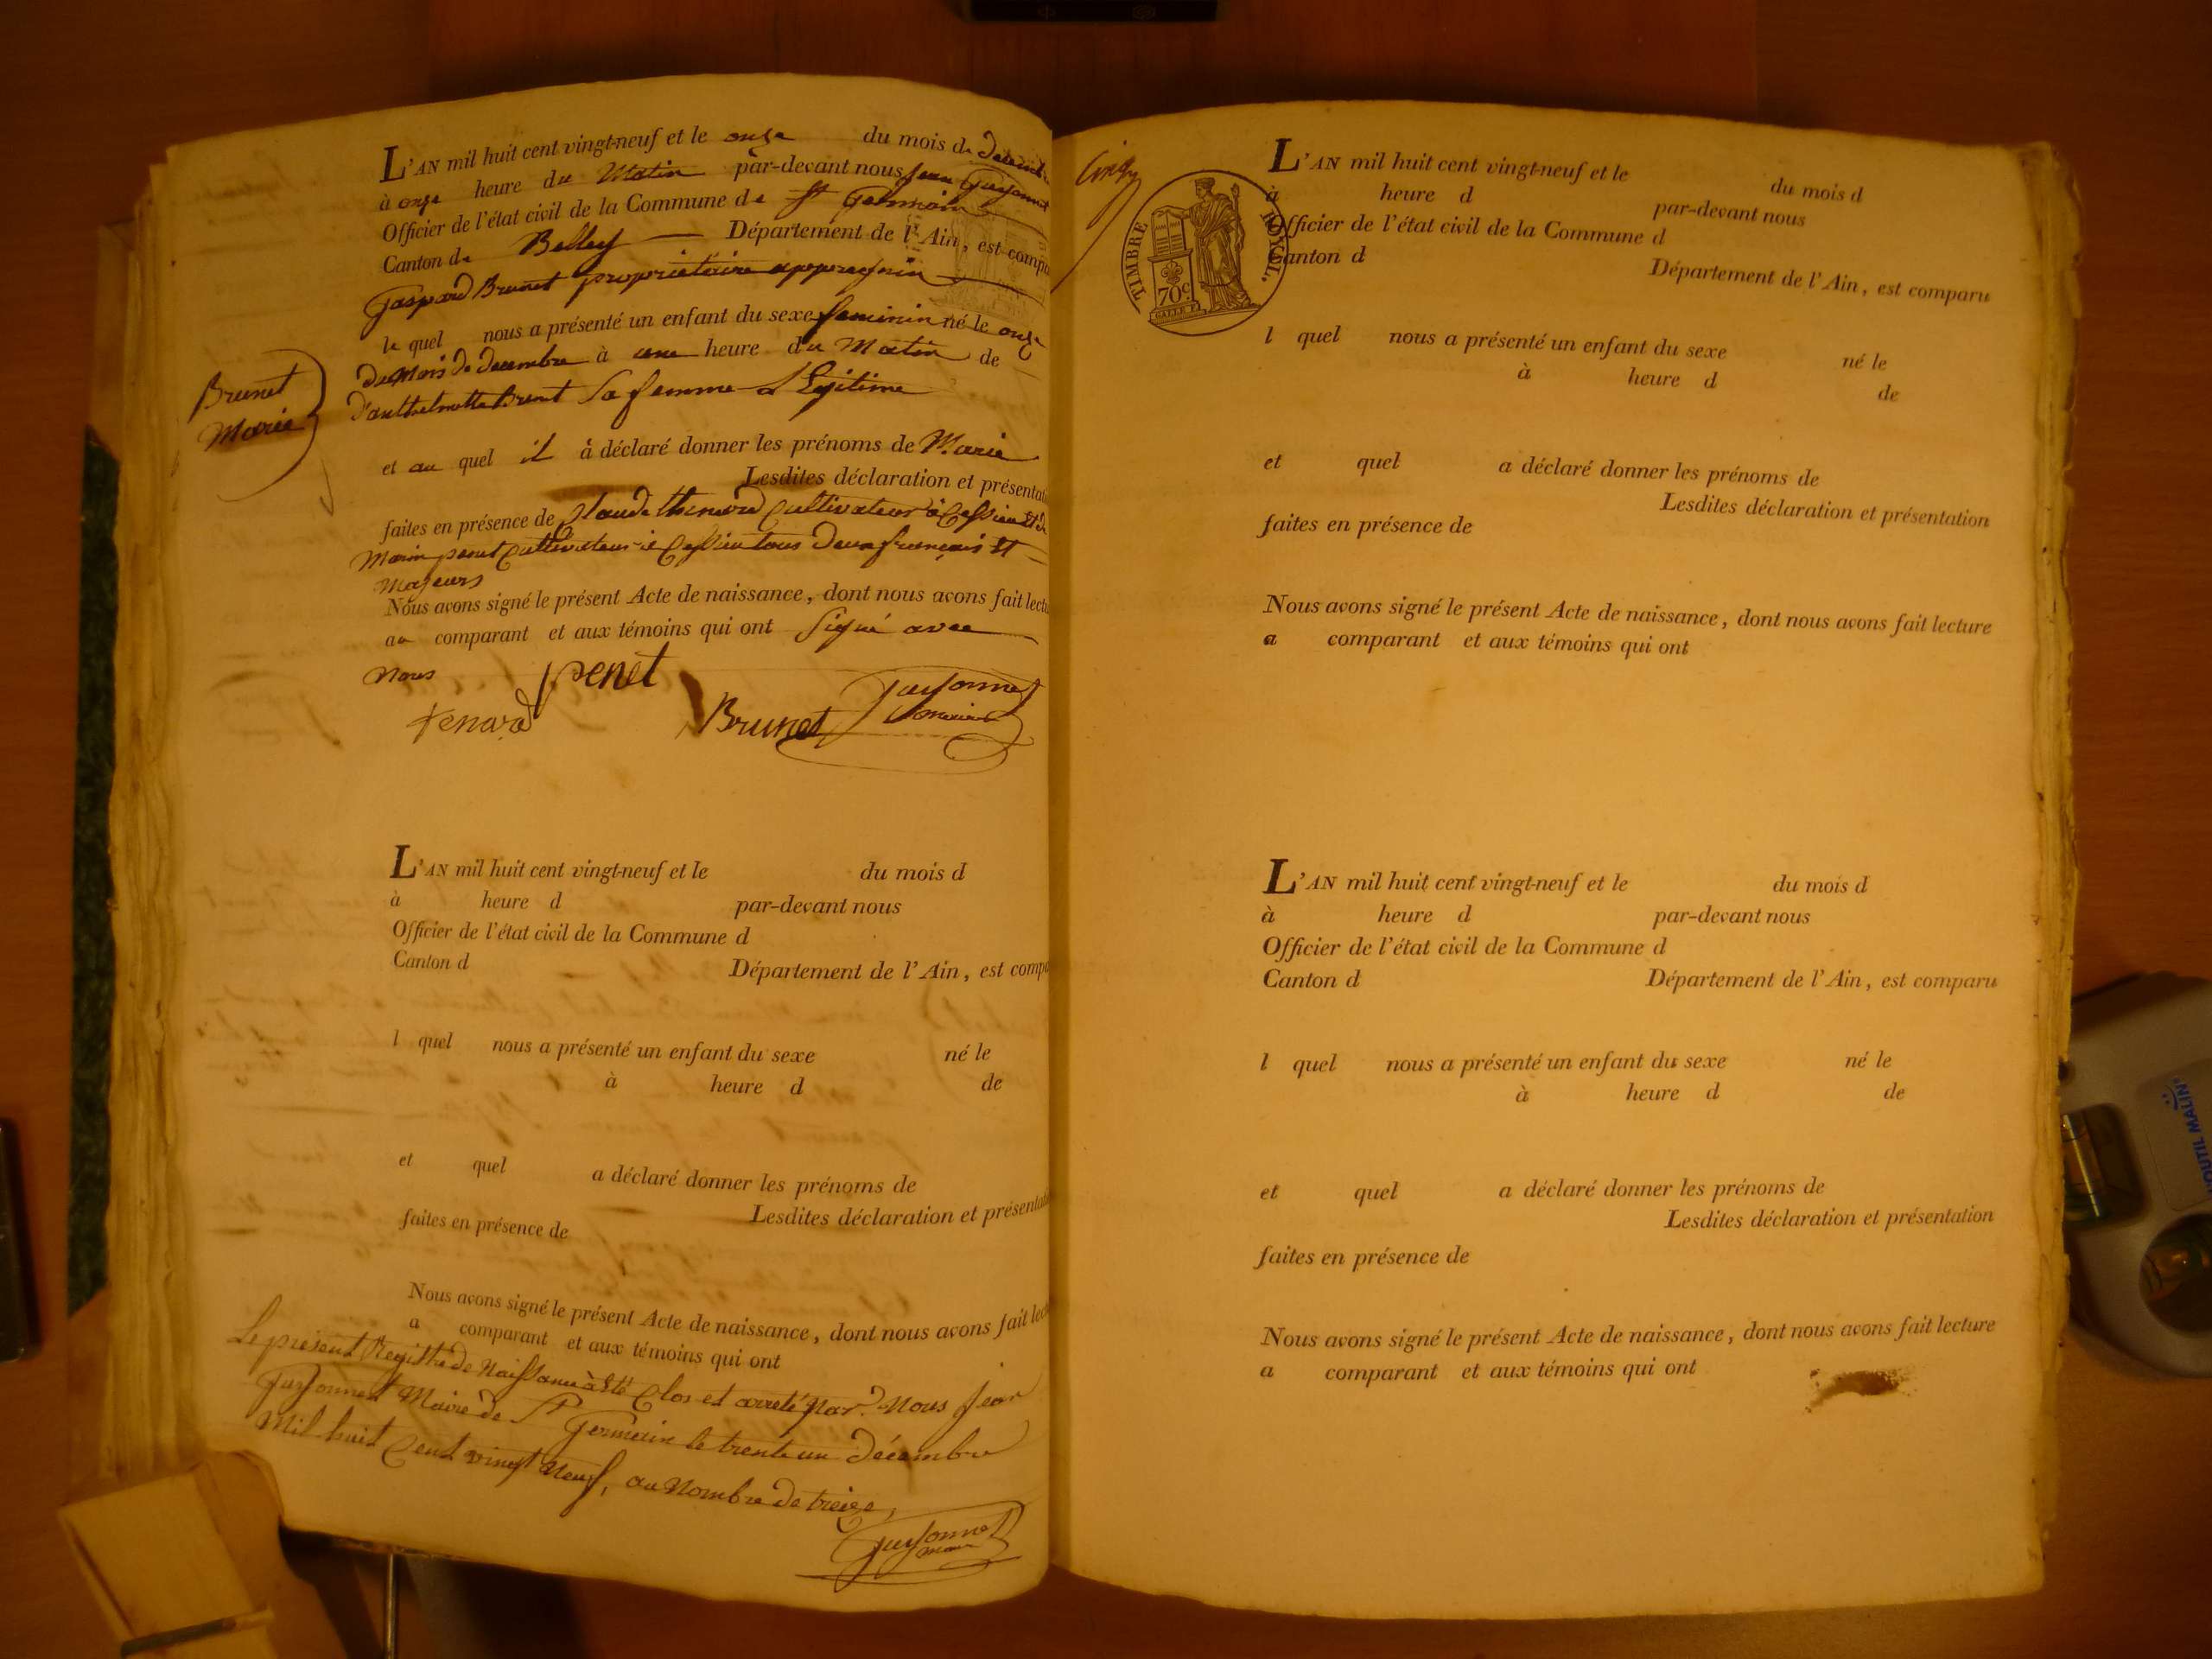 L'AN mil huit cent vingt-neuf et le onze du mois de decemb
à onze heure du Matin par-devant nous jean Guysonnet
Officier de l'état civil de la Commune de St Germain
Canton de Belley Département de l'Ain, est compa
Gaspard Brunet propriétaire
le quel nous a présenté un enfant du sexe feminin né le onze
du Mois de decembre à une heure du Matin de
d'anthelmette Brunet Sa femme Legitime
Brunet
Marie
et au quel il à déclaré donner les prénoms de Marie
Lesdites déclaration et présentati
faites en présence de Claude thenard Cultivateur à Cessieu et de
Marin penet Cultivateur à Cessieu tous deux français et
Majeurs
Nous avons signé le présent Acte de naissance, dont nous avons fait lectu
au comparant et aux témoins qui ont Signé avec
Nous
penet
Tenard
Brunet
Guysonnet
maire
L'AN mil huit cent vingt-neuf et le du mois d
à heure d par-devant nous
Officier de l'état civil de la Commune d
Canton d Département de l'Ain, est compa
l quel nous a présenté un enfant du sexe né le
à heure d de
et quel a déclaré donner les prénoms de
Lesdites déclaration et présentati
faites en présence de
Nous avons signé le présent Acte de naissance, dont nous avons fait lec
a comparant et aux témoins qui ont
Le présent Registre de Naissance à été Clos et arreté par Nous Jean
Guysonnet Maire de St Germain le trente un décembre
Mil huit Cent vingt Neuf, au Nombre de treize,
Guysonnet
maire
TIMBRE ROYAL.
70c.
L'AN mil huit cent vingt-neuf et le du mois d
à heure d par-devant nous
Officier de l'état civil de la Commune d
Canton d Département de l'Ain, est comparu
l quel nous a présenté un enfant du sexe né le
à heure d de
et quel a déclaré donner les prénoms de
Lesdites déclaration et présentation
faites en présence de
Nous avons signé le présent Acte de naissance, dont nous avons fait lecture
a comparant et aux témoins qui ont
L'AN mil huit cent vingt-neuf et le du mois d
à heure d par-devant nous
Officier de l'état civil de la Commune d
Canton d Département de l'Ain, est comparu
l quel nous a présenté un enfant du sexe né le
à heure d de
et quel a déclaré donner les prénoms de
Lesdites déclaration et présentation
faites en présence de
Nous avons signé le présent Acte de naissance, dont nous avons fait lecture
a comparant et aux témoins qui ont
L'OUTIL MALIN